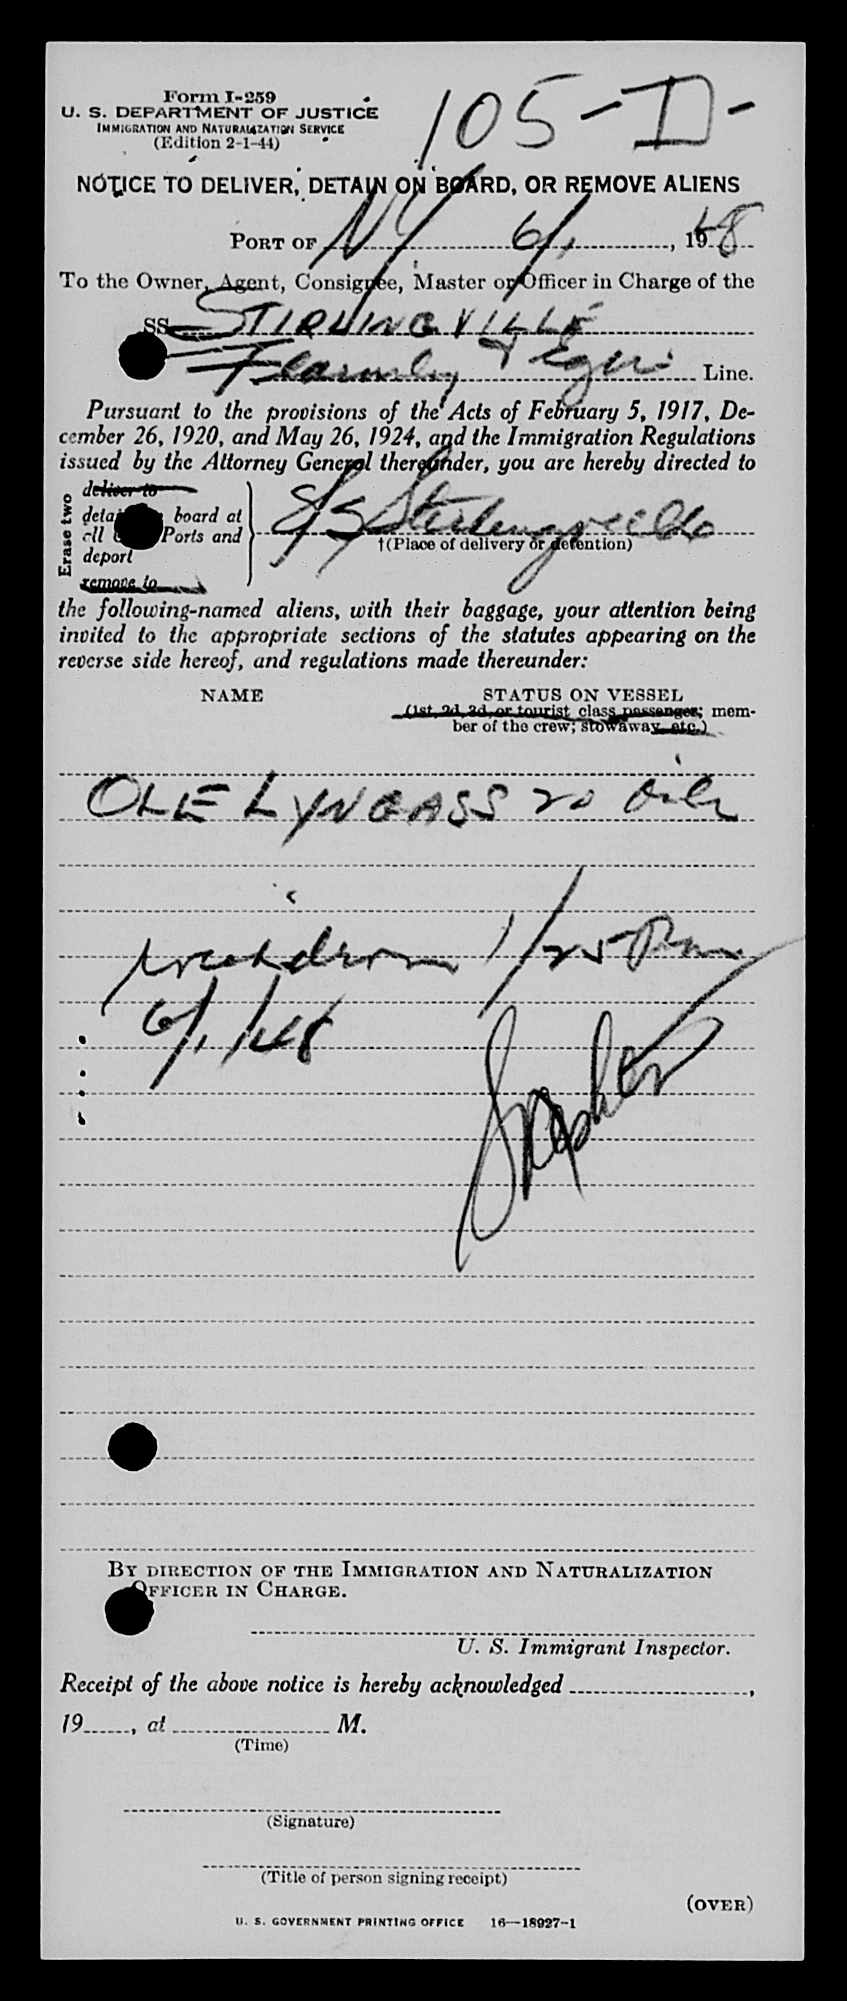 Form I-259
U. S. DEPARTMENT OF JUSTICE
IMMIGRATION AND NATURALIZATION SERVICE
(Edition 2-1-44)
105-D-
NOTICE TO DELIVER, DETAIN ON BOARD, OR REMOVE ALIENS
PORT OF NY 6/1, 1948
To the Owner, Agent, Consignee, Master or Officer in Charge of the
SS STIRLINGVILLE
Fearnley & Eger Line.
Pursuant to the provisions of the Acts of February 5, 1917, De-
cember 26, 1920, and May 26, 1924, and the Immigration Regulations
issued by the Attorney General thereunder, you are hereby directed to
Erase two
deliver to
detain board at
all Ports and
deport
remove to
S/S Sterlingville
†(Place of delivery or detention)
the following-named aliens, with their baggage, your attention being
invited to the appropriate sections of the statutes appearing on the
reverse side hereof, and regulations made thereunder:
NAME STATUS ON VESSEL
(1st, 2d, 3d, or tourist class passenger; mem-
ber of the crew; stowaway, etc.)
OLE LYNGASS 20
1/25 Pm
6/1/48
BY DIRECTION OF THE IMMIGRATION AND NATURALIZATION
OFFICER IN CHARGE.
U. S. Immigrant Inspector.
Receipt of the above notice is hereby acknowledged ,
19 , at M.
(Time)
(Signature)
(Title of person signing receipt)
(OVER)
U. S. GOVERNMENT PRINTING OFFICE 16—18927-1